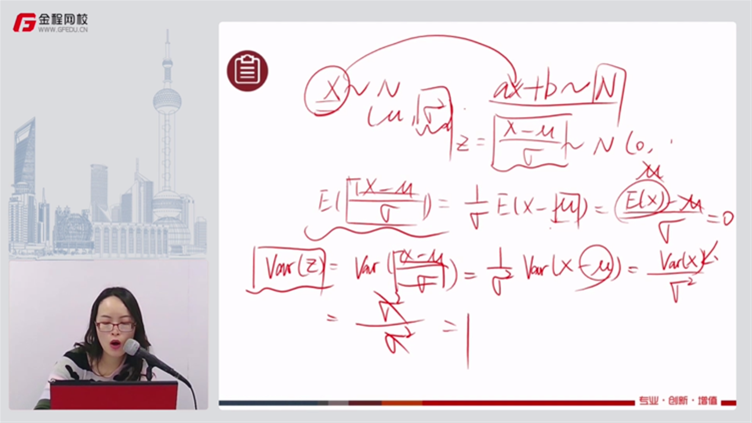 金程网校
WWW.GFEDU.CN
X ~ N
(μ, σ²)
ax+b ~ N
z = (X-μ)/σ ~ N(0,
E((X-μ)/σ) = 1/σ E(X-μ) = (E(X)-μ)/σ = 0
μ
Var(z) = Var((X-μ)/σ) = 1/σ² Var(X-μ) = Var(X)/σ²
= σ²/σ² = 1
专业·创新·增值